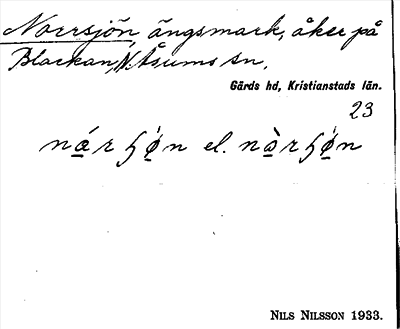 Norrsjön ängsmark, åker på
Blackan, N. Åsums sn,
Gärds hd, Kristianstads län.
23
nær ɧø̀n el. nòrɧø̀n
NILS NILSSON 1933.